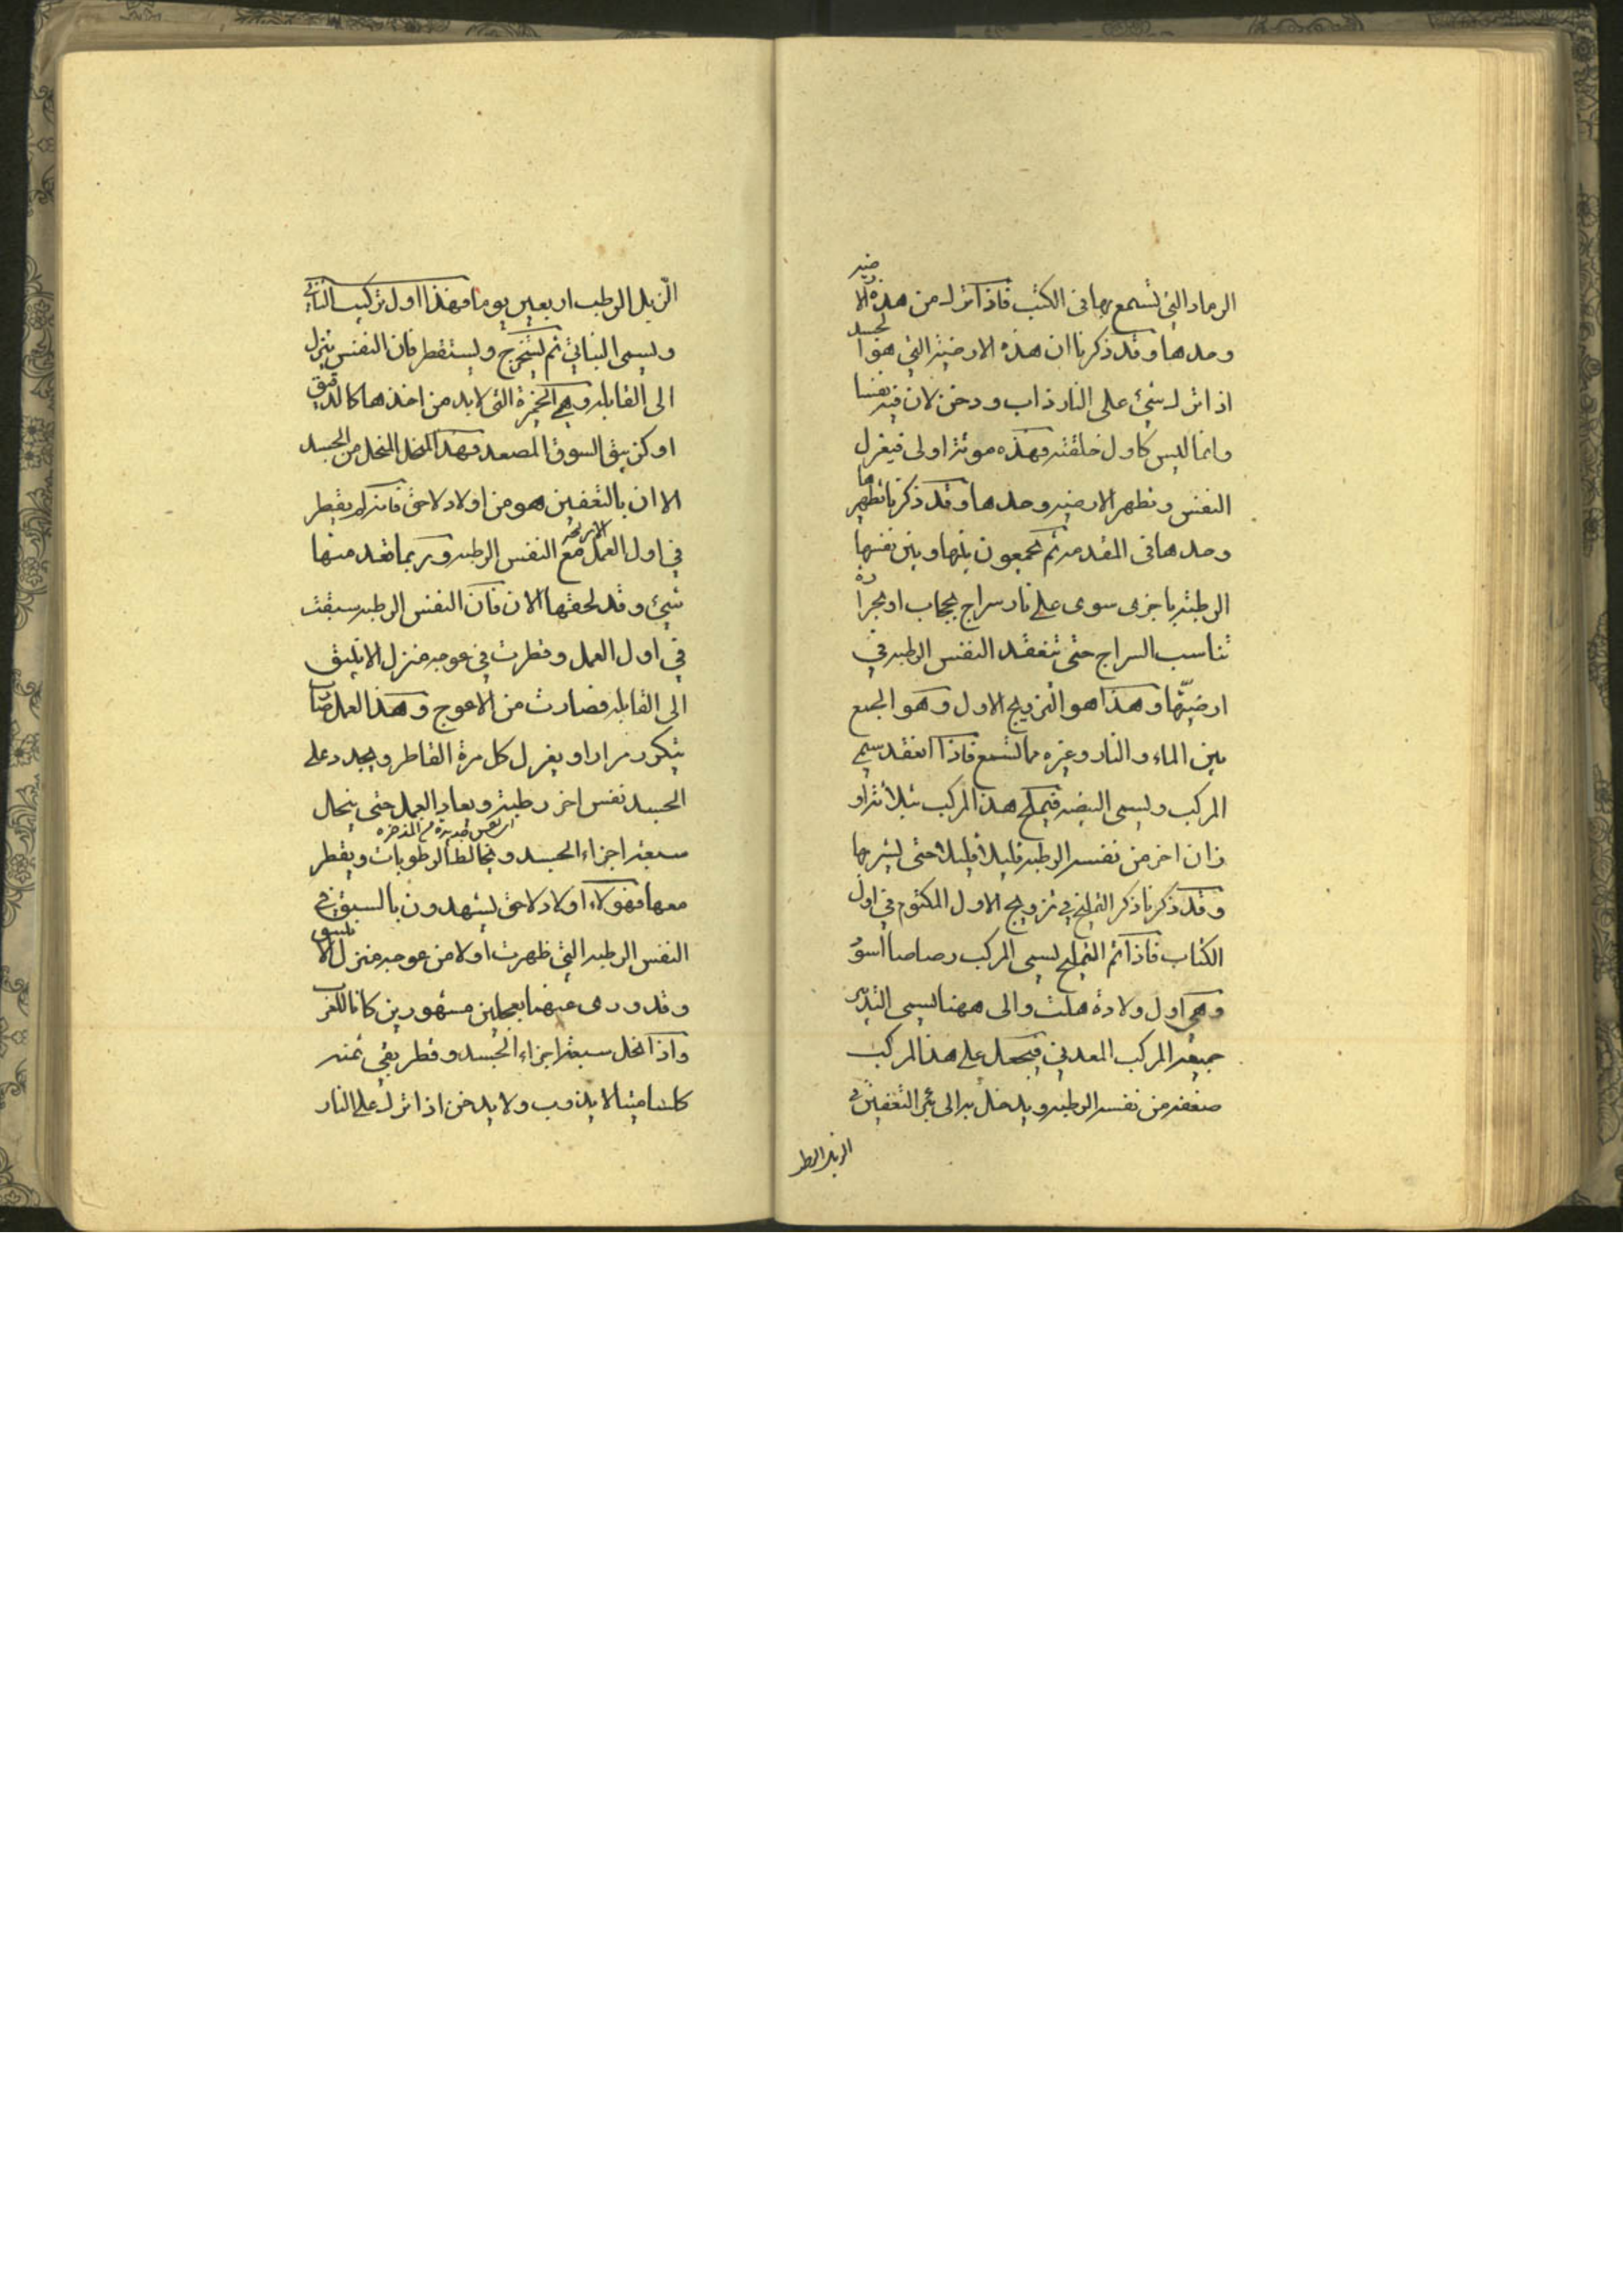 الرماد التى تسمع بها فى الكتب فاذا ترك من هذه الارضيه
وحدها وقد ذكرنا ان هذه الارضية التي هو الجسد
اذا ترك شئ على النار ذاب ودخن لان فيه نفسا
وانما ليس كاول خلقته وهذه موتة اولى فيعزل
النفس وتطهر الارضيه وحدها وقد ذكرنا تطهيرها
وحدها فى المقدمه ثم يجمعون بينها وبين نفسها
الرطبة باجزى سوى على نار سراج بحجاب او بحرارة
تناسب السراج حتى تنعقد النفس الرطبه في
ارضيتها وهذا هو التزويج الاول وهو الجمع
بين الماء والنار وغيره مما تسمع فاذا انعقد سمي
المركب ويسمى البيضه فيملح هذا المركب بثلاثة او
زان اخر من نفسه الرطبه قليلا قليلا حتى يشربها
وقد ذكرنا ذكر التمليح في تزويج الاول المكتوم في اول
الكتاب فاذا تم التمليح يسمى المركب رصاصا اسود
وهي اول ولادة هلت والى ههنا يسمى التدبير
جميعه المركب المعدني فيجعل على هذا المركب
ضعفه من نفسه الرطبه ويدخل به الى بئر التعفين في
الزبل الرطب
الزبل الرطب اربعين يوما وهذا اول تركيب الثاني
ويسمى النباتي ثم يستخرج ويستقطر فان النفس ينزل
الى القابله وهي الخميرة التى لابد من اخذها كالدقيق
او كزيبق السوق المصعد وهذا المنحل من الجسد
الا ان بالتعفين هو من اولاد لاحق فانه لم يقطر
في اول العمل مع النفس الرطبه وربما تعد منها
شئ وقد لحقتها الان فان النفس الرطبه سبقت
في اول العمل وقطرت في عوجه منزل الانبيق
الى القابله فصارت من الاعوج وهذا العمل
يتكرر مرارا ويعزل كل مرة القاطر ويجدد على
الجسد نفس اخر رطبة ويعاد العمل حتى ينحال
سبعة اجزاء الجسد ويخالط الرطوبات ويقطر
معها فهولاء اولاد لاحق يشهدون بالسبق في
النفس الرطبه التى ظهرت اولا من عوجه منزل الانبيق
وقد ورى عنهما بعجلين مشهورين كانا للعرب
واذا انحل سبعة اجزاء الجسد وقطر بقي ثمنه
كلسا ميتا لا يذوب ولا يدخن اذا ترك على النار